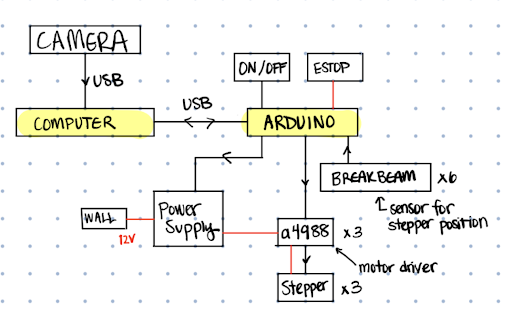 CAMERA
USB
ON/OFF
ESTOP
USB
COMPUTER
ARDUINO
BREAKBEAM x6
sensor for
stepper position
WALL
12V
Power
Supply
a4988 x3
motor driver
Stepper x3